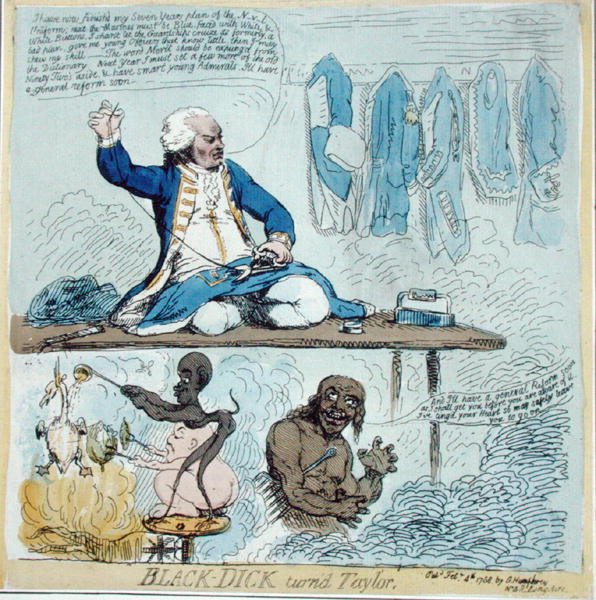 I have now finish'd my Seven Years plan of the N.v.l
Uniform; next the Marines must be Blue, faced with White, &
White Buttons, I sha'nt let the Guardships cruise as formerly, a
bad plan, give me young Officers that know little then I may
shew my skill The word Merit should be expung'd from
the Dictionary Next Year I must set a few more of the old
Ninety Two's aside, & have smart young Admirals. Ill have
a general reform soon
And I'll have a general Reform soon
as I shall get you before you are aware of it
I've sing'd your Heart so may safely leave
you to go on.
BLACK-DICK turn'd Taylor.
Pubd. Feby. 4th 1788 by G. Humphrey
Long Acre.